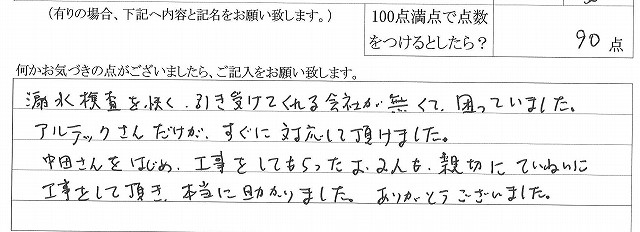 (有りの場合、下記へ内容と記名をお願い致します。)
100点満点で点数
をつけるとしたら?
90 点
何かお気づきの点がございましたら、ご記入をお願い致します。
漏水検査を快く、引き受けてくれる会社が無くて、困っていました。
アルテックさんだけが、すぐに対応して頂けました。
中田さんをはじめ、工事をしてもらったお2人も、親切にていねいに
工事をして頂き、本当に助かりました。ありがとうございました。